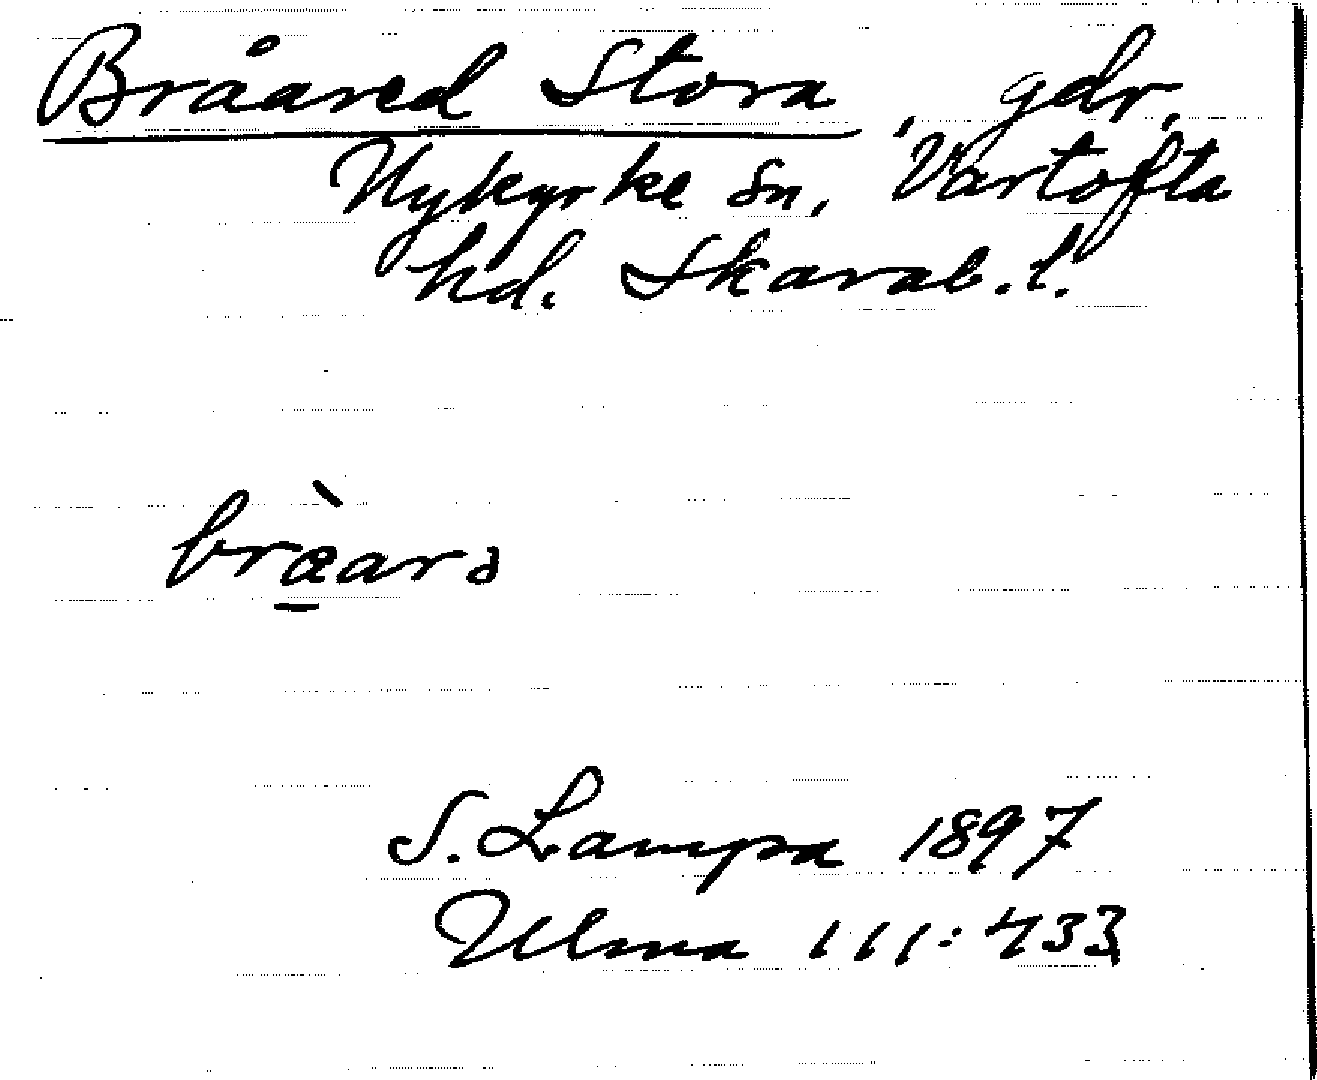 Bråared Stora, gdr,
Nykyrke sn, Vartofta
hd. Skarab. l.
bræ̀arə
S. Lampa 1897
Ulma 111:433